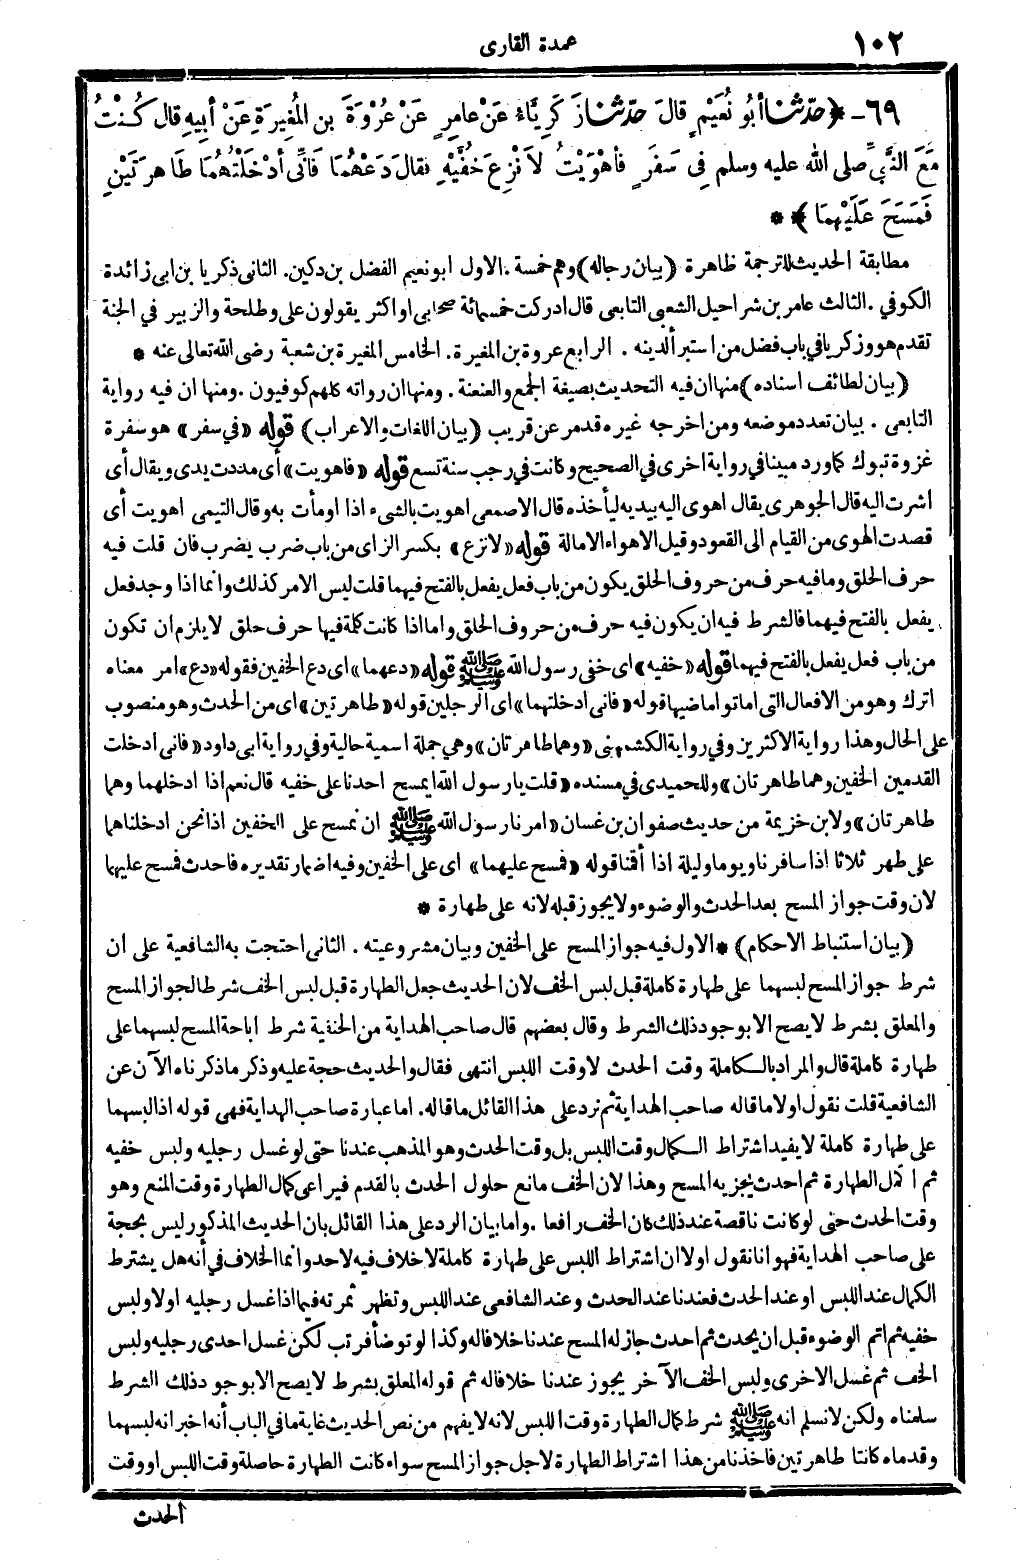 ١٠٢
عمدة القارى
٦٩ - ﴿ حدّثنا أبُو نُعَيْمٍ قالَ حدّثنا زَكَرِيَّاءُ عَنْ عامِرٍ عَنْ عُرْوَةَ بنِ المُغِيرَةِ عَنْ أبِيهِ قال كُنْتُ
مَعَ النَّبيِّ صلى الله عليه وسلم فِى سَفَرٍ فأهْوَيْتُ لأَنْزِعَ خُفَّيْهِ فقالَ دَعْهُمَا فَانِّى أدْخَلْتُهُمَا طَاهِرَتَيْنِ
فَمَسَحَ عَلَيْهِمَا ﴾ *
مطابقة الحديث للترجمة ظاهرة (بيان رجاله) وهم خمسة . الاول ابو نعيم الفضل بن دكين . الثانى زكريا بن ابى زائدة
الكوفي . الثالث عامر بن شراحيل الشعبى التابعى قال ادركت خمسمائة صحابى او اكثر يقولون على وطلحة والزبير في الجنة
تقدم هو وزكريا في باب فضل من استبرأ لدينه . الرابع عروة بن المغيرة . الخامس المغيرة بن شعبة رضى الله تعالى عنه *
(بيان لطائف اسناده) منها ان فيه التحديث بصيغة الجمع والعنعنة . ومنها ان رواته كلهم كوفيون . ومنها ان فيه رواية
التابعى . بيان تعدد موضعه ومن اخرجه غيره قدمر عن قريب (بيان اللغات والاعراب) قوله «في سفر» هو سفرة
غزوة تبوك كما ورد مبينا في رواية اخرى في الصحيح وكانت في رجب سنة تسع قوله «فاهويت» أى مددت يدى ويقال أى
اشرت اليه قال الجوهرى يقال اهوى اليه بيديه ليأخذه قال الاصمعى اهويت بالشىء اذا اومأت به وقال التيمى اهويت أى
قصدت الهوى من القيام الى القعود وقيل الاهواء الامالة قوله «لانزع» بكسر الزاى من باب ضرب يضرب فان قلت فيه
حرف الحلق وما فيه حرف من حروف الحلق يكون من باب فعل يفعل بالفتح فيهما قلت ليس الامر كذلك وانما اذا وجد فعل
يفعل بالفتح فيهما فالشرط فيه ان يكون فيه حرف من حروف الحلق واما اذا كانت كلمة فيها حرف حلق لا يلزم ان تكون
من باب فعل يفعل بالفتح فيهما قوله «خفيه» اى خفى رسول الله ﷺ قوله «دعهما» اى دع الخفين فقوله «دع» امر معناه
اترك وهو من الافعال التى اماتوا ماضيها قوله «فانى ادخلتهما» اى الرجلين قوله «طاهرتين» اى من الحدث وهو منصوب
على الحال وهذا رواية الاكثرين وفي رواية الكشميهنى «وهما طاهرتان» وهي جملة اسمية حالية وفي رواية ابى داود «فانى ادخلت
القدمين الخفين وهما طاهرتان» وللحميدى في مسنده «قلت يا رسول الله ايمسح احدنا على خفيه قال نعم اذا ادخلهما وهما
طاهرتان» ولابن خزيمة من حديث صفوان بن غسان «امرنا رسول الله ﷺ ان نمسح على الخفين اذا نحن ادخلناهما
على طهر ثلاثا اذا سافرنا ويوما وليلة اذا أقمنا قوله «فمسح عليهما» اى على الخفين وفيه اضمار تقديره فاحدث فمسح عليهما
لان وقت جواز المسح بعد الحدث والوضوء ولا يجوز قبله لانه على طهارة *
(بيان استنباط الاحكام) * الاول فيه جواز المسح على الخفين وبيان مشروعيته . الثانى احتجت به الشافعية على أن
شرط جواز المسح لبسهما على طهارة كاملة قبل لبس الخف لان الحديث جعل الطهارة قبل لبس الخف شرطا لجواز المسح
والمعلق بشرط لا يصح الا بوجود ذلك الشرط وقال بعضهم قال صاحب الهداية من الحنفية شرط اباحة المسح لبسهما على
طهارة كاملة قال والمراد بالكاملة وقت الحدث لا وقت اللبس انتهى فقال والحديث حجة عليه وذكر ما ذكرناه الآن عن
الشافعية قلت نقول اولا ما قاله صاحب الهداية ثم نرد على هذا القائل ما قاله . اما عبارة صاحب الهداية فهى قوله اذا لبسهما
على طهارة كاملة لا يفيد اشتراط الكمال وقت اللبس بل وقت الحدث وهو المذهب عندنا حتى لو غسل رجليه ولبس خفيه
ثم اكمل الطهارة ثم احدث يجزيه المسح وهذا لان الخف مانع حلول الحدث بالقدم فيراعى كمال الطهارة وقت المنع وهو
وقت الحدث حتى لو كانت ناقصة عند ذلك كان الخف رافعا . واما بيان الرد على هذا القائل بان الحديث المذكور ليس بحجة
على صاحب الهداية فهو انا نقول اولا ان اشتراط اللبس على طهارة كاملة لا خلاف فيه لاحد وانما الخلاف في أنه هل يشترط
الكمال عند اللبس او عند الحدث فعندنا عند الحدث وعند الشافعى عند اللبس وتظهر ثمرته فيما اذا غسل رجليه اولا ولبس
خفيه ثم اتم الوضوء قبل ان يحدث ثم احدث جاز له المسح عندنا خلافا له وكذا لو توضأ فرتب لكن غسل احدى رجليه ولبس
الخف ثم غسل الاخرى ولبس الخف الآخر يجوز عندنا خلافا له ثم قوله المعلق بشرط لا يصح الا بوجود ذلك الشرط
سلمناه ولكن لا نسلم انه ﷺ شرط كمال الطهارة وقت اللبس لانه لا يفهم من نص الحديث غاية ما في الباب أنه اخبر انه لبسهما
وقدماه كانتا طاهرتين فاخذنا من هذا اشتراط الطهارة لاجل جواز المسح سواء كانت الطهارة حاصلة وقت اللبس او وقت
الحدث